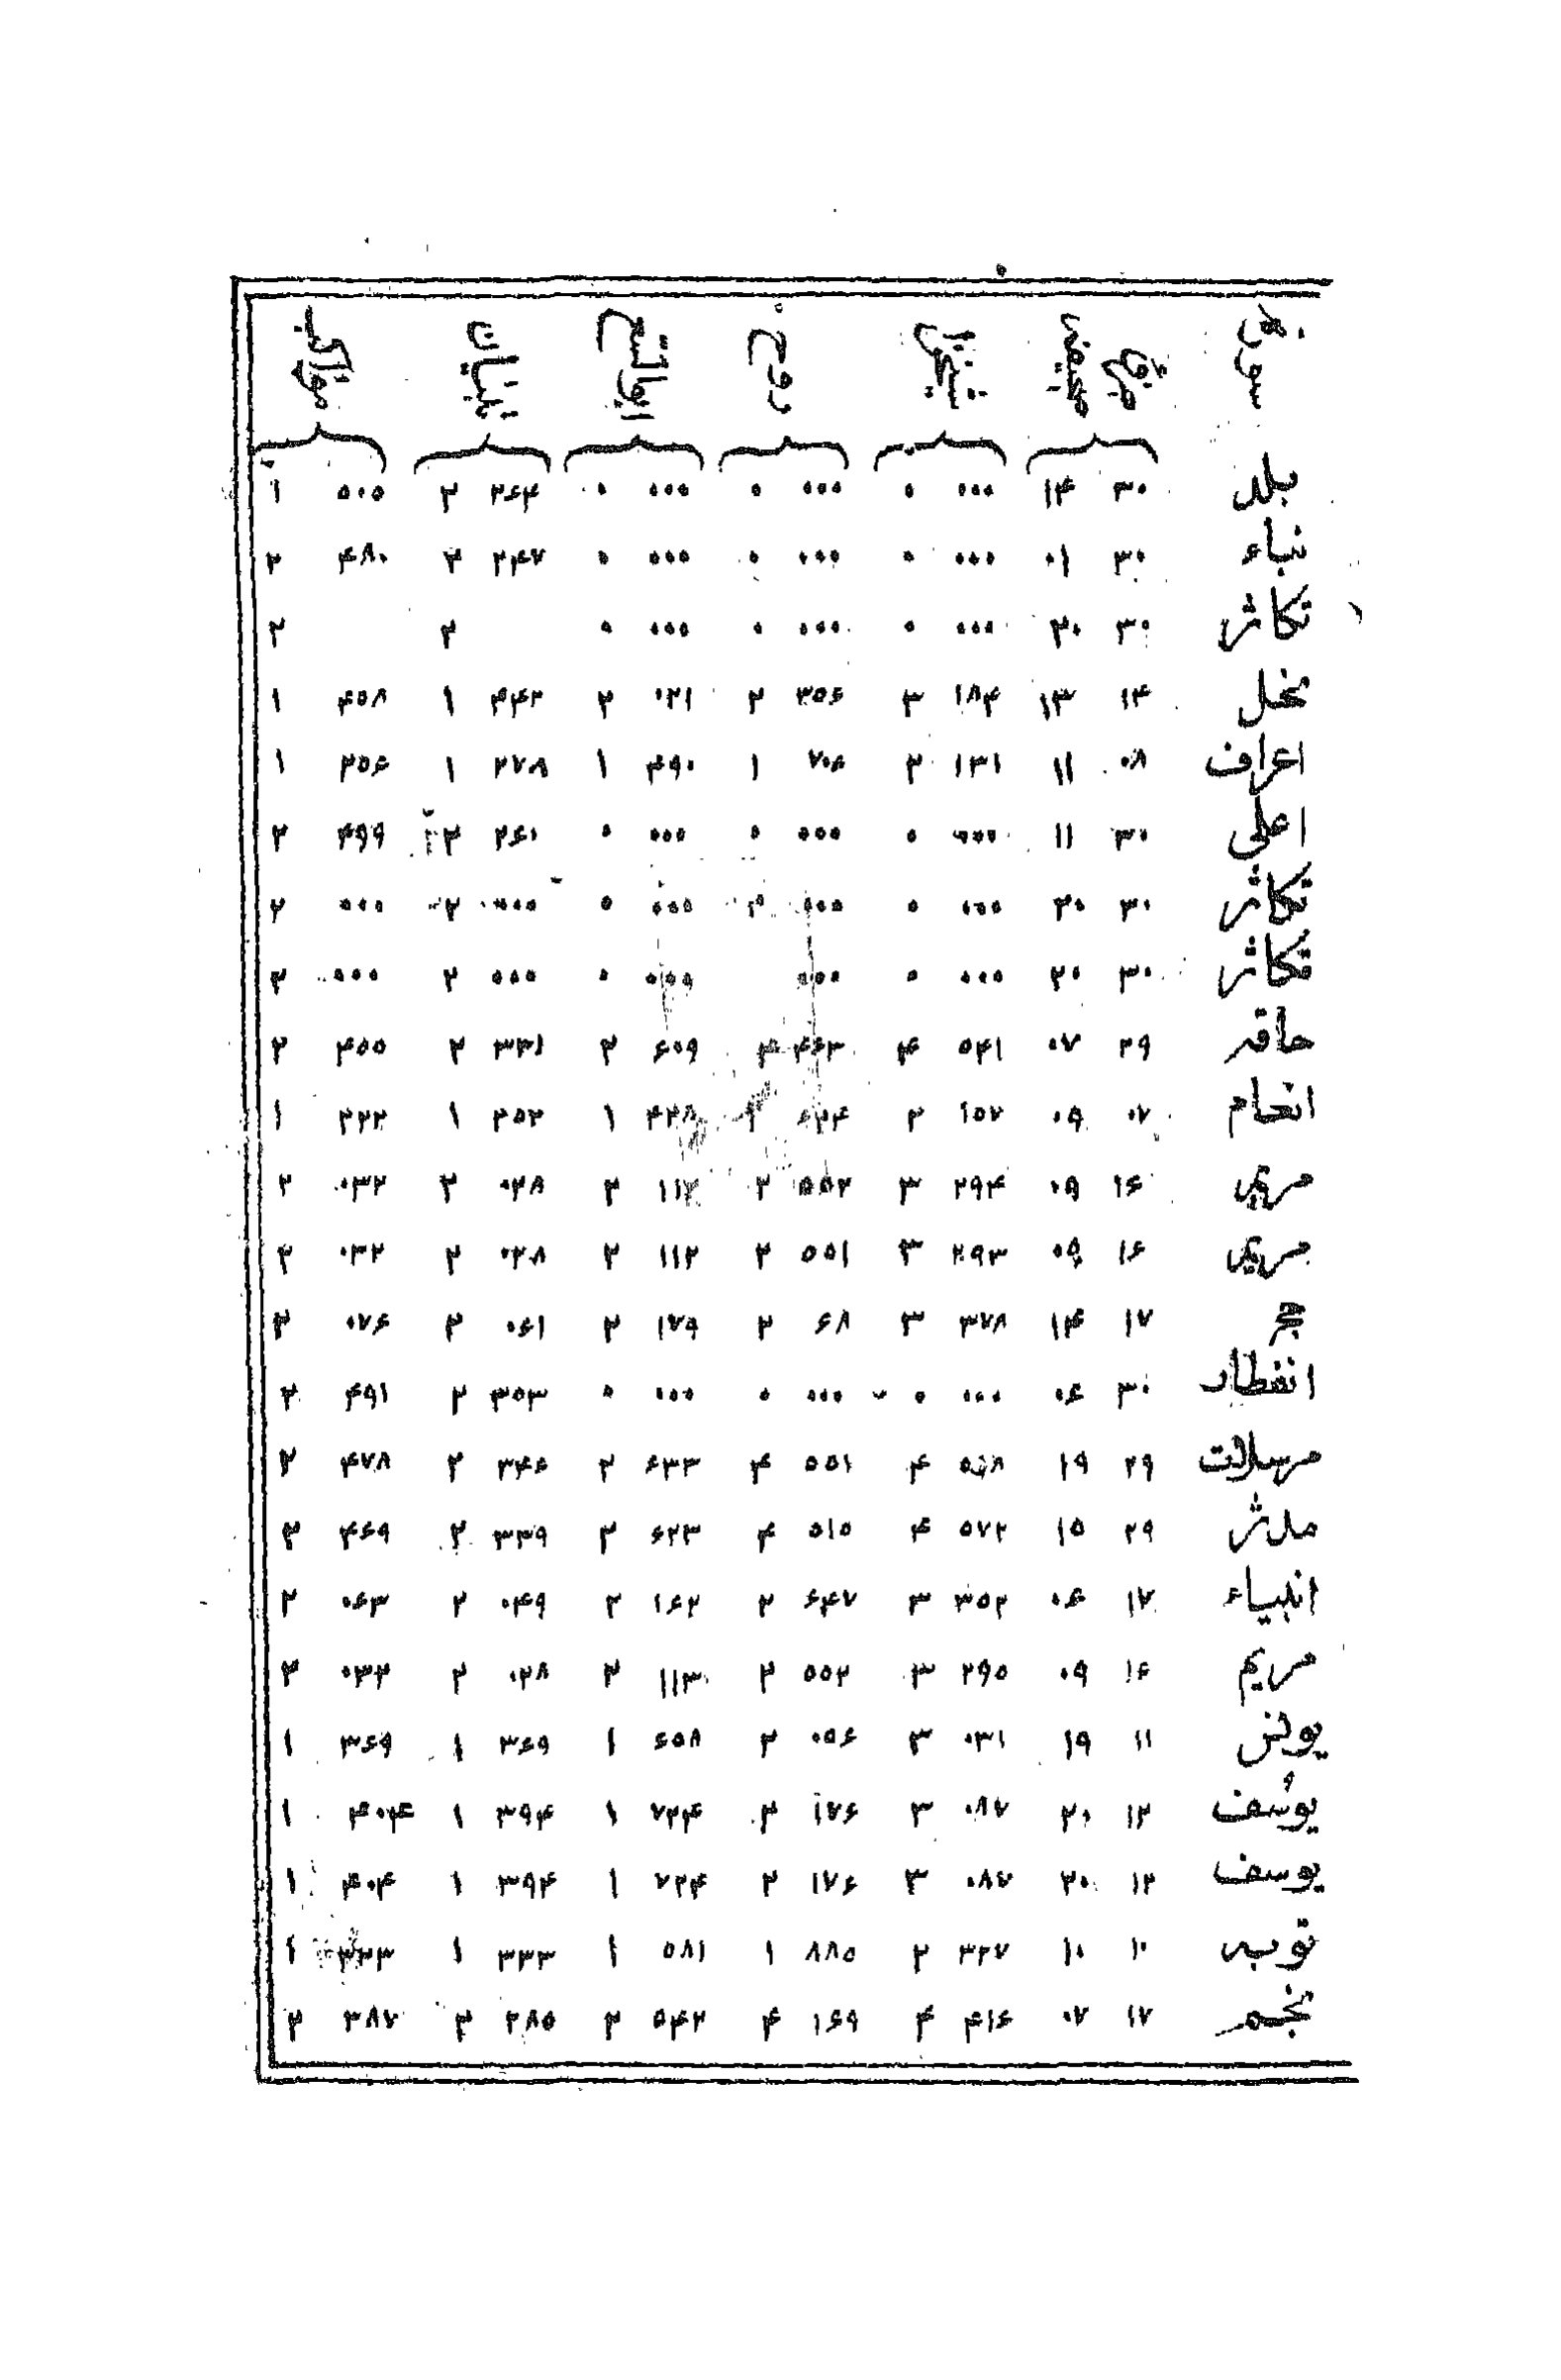 بلد ۳۰ ۱۴ ۰۰۰ ۰ ۰۰۰ ۰ ۰۰۰ ۰ ۲۶۴ ۲ ۵۰۵ ۱
نباء ۳۰ ۰۱ ۰۰۰ ۰ ۰۰۰ ۰ ۰۰۰ ۰ ۲۴۷ ۲ ۴۸۰ ۲
تکاثر ۳۰ ۲۰ ۰۰۰ ۰ ۰۰۰ ۰ ۰۰۰ ۰ ۲ ۲
نحل ۱۴ ۱۳ ۱۸۴ ۳ ۳۵۶ ۲ ۰۲۱ ۲ ۴۴۲ ۱ ۴۵۸ ۱
اعراف ۰۸ ۱۱ ۱۳۱ ۲ ۷۰۶ ۱ ۴۹۰ ۱ ۲۷۸ ۱ ۲۵۶ ۱
اعلی ۳۰ ۱۱ ۰۰۰ ۰ ۰۰۰ ۰ ۰۰۰ ۰ ۲۶۰ ۲ ۴۹۹ ۲
تکاثر ۳۰ ۲۰ ۰۰۰ ۰ ۰۰۰ ۰۰۰ ۰ ۰۰۰ ۲ ۰۰۰ ۲
تکاثر ۳۰ ۲۰ ۰۰۰ ۰ ۰۰۰ ۰۰۰ ۰ ۰۰۰ ۲ ۰۰۰ ۲
حاقہ ۲۹ ۰۷ ۵۴۱ ۴ ۴۶۳ ۴ ۶۰۹ ۲ ۳۳۱ ۲ ۴۵۵ ۲
انعام ۰۷ ۰۹ ۱۵۷ ۲ ۴۲۸ ۱ ۲۵۲ ۱ ۲۲۲ ۱
مریم ۱۶ ۰۹ ۲۹۴ ۳ ۵۵۲ ۲ ۱۱۲ ۲ ۰۲۸ ۲ ۰۳۲ ۲
مریم ۱۶ ۰۹ ۲۹۳ ۳ ۵۵۱ ۲ ۱۱۲ ۲ ۰۲۸ ۲ ۰۳۲ ۲
حج ۱۷ ۱۴ ۳۷۸ ۳ ۶۸ ۲ ۱۷۹ ۲ ۰۶۱ ۲ ۰۷۶ ۲
انفطار ۳۰ ۰۶ ۰۰۰ ۰ ۰۰۰ ۰ ۰۰۰ ۰ ۳۵۳ ۲ ۴۹۱ ۲
مرسلات ۲۹ ۱۹ ۴ ۵۵۱ ۴ ۶۳۳ ۲ ۳۴۶ ۲ ۴۷۸ ۲
مدثر ۲۹ ۱۵ ۵۷۲ ۴ ۵۱۵ ۴ ۶۲۳ ۲ ۳۳۹ ۲ ۴۶۹ ۲
انبیاء ۱۷ ۰۶ ۳۵۲ ۳ ۶۴۷ ۲ ۱۶۲ ۲ ۰۴۹ ۲ ۰۶۳ ۲
مریم ۱۶ ۰۹ ۲۹۵ ۳ ۵۵۲ ۲ ۱۱۳ ۲ ۰۲۸ ۲ ۰۳۲ ۲
یونس ۱۱ ۱۹ ۰۳۱ ۳ ۰۵۶ ۲ ۶۵۸ ۱ ۳۶۹ ۱ ۳۶۹ ۱
یوسُف ۱۲ ۲۰ ۰۸۷ ۳ ۱۷۶ ۲ ۷۲۴ ۱ ۳۹۴ ۱ ۴۰۴ ۱
یوسف ۱۲ ۲۰ ۰۸۷ ۳ ۱۷۶ ۲ ۷۲۴ ۱ ۳۹۴ ۱ ۴۰۴ ۱
توبہ ۱۰ ۱۰ ۳۲۷ ۲ ۸۸۵ ۱ ۵۸۱ ۱ ۳۳۳ ۱ ۳۲۳ ۱
نجم ۱۷ ۰۷ ۴۱۶ ۴ ۱۶۹ ۴ ۵۴۲ ۲ ۲۸۵ ۲ ۳۸۷ ۲